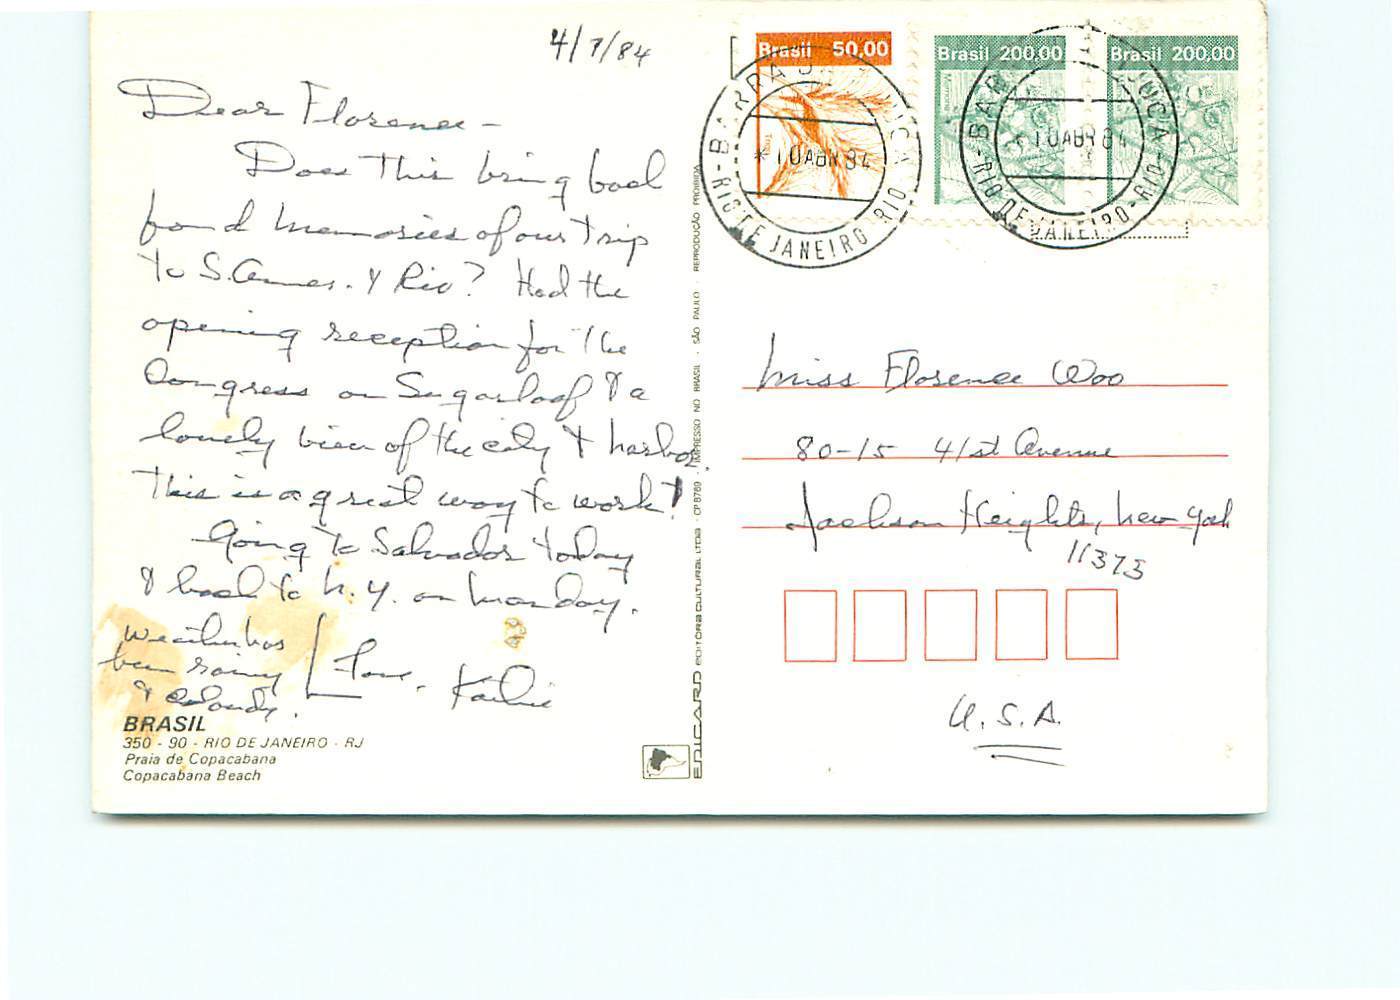 4/7/84
Dear Florence -
Does this bring back
fond memories of our trip
to S. Amer. & Rio? Had the
opening reception for the
Congress on Sugarloaf & a
lovely view of the city & harbor.
This is a great way to work!
Going to Salvador today
& back to N.Y. on Monday.
Weather has
been rainy
& cloudy.
Love,
BRASIL
350 - 90 - RIO DE JANEIRO - RJ
Praia de Copacabana
Copacabana Beach
EDICARD EDITORA CULTURAL LTDA - CP 8769 - IMPRESSO NO BRASIL - SÃO PAULO - REPRODUÇÃO PROIBIDA
Brasil 50,00
Brasil 200,00
Brasil 200,00
BARRA DA TIJUCA - RIO
* 10 ABR 84
RIO DE JANEIRO
BARRA DA TIJUCA - RIO
10 ABR 84
RIO DE JANEIRO
Miss Florence Woo
80-15 41st Avenue
Jackson Heights, New York
11373
U.S.A.